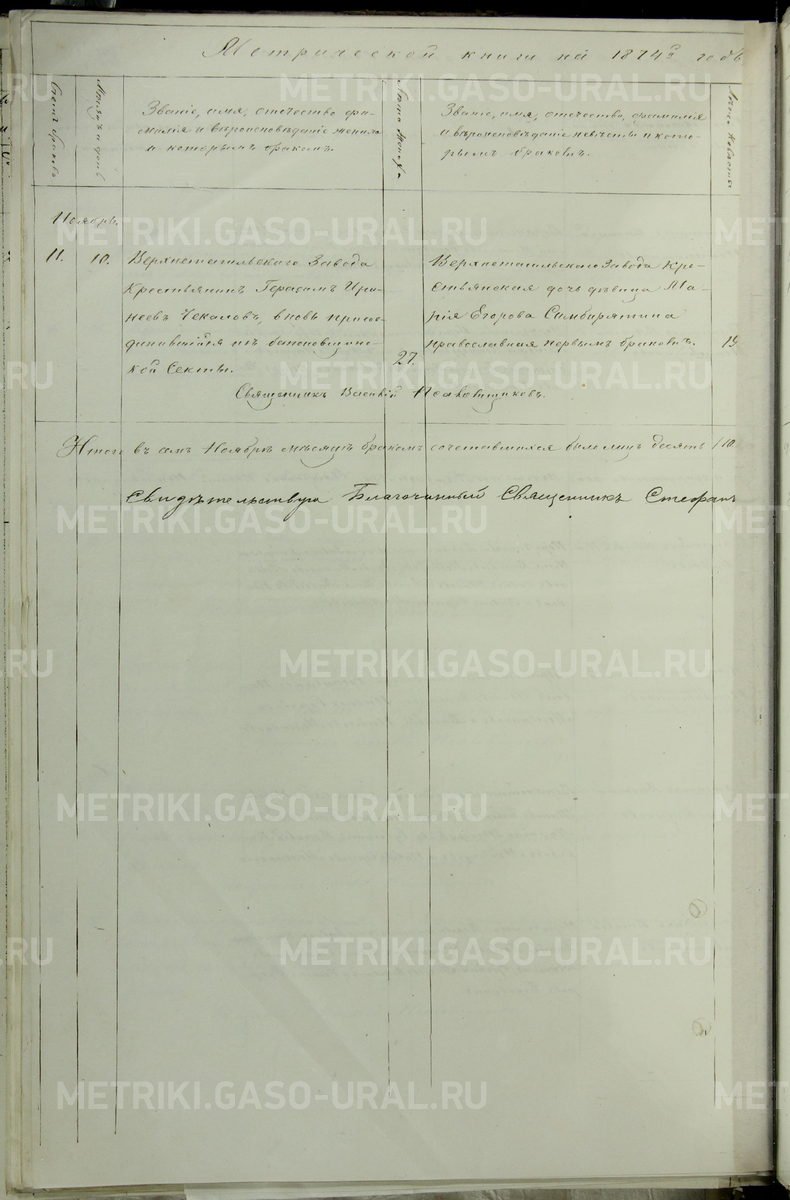 Метрической книги на 1874й годъ
Счетъ браковъ
Мѣсяцъ и день
Званіе, имя, отечество, фа-
милія и вѣроисповѣданіе жениха
и которымъ бракомъ.
Лѣта жениха
Званіе, имя, отечество, фамилія
и вѣроисповѣданіе невѣсты и кото-
рымъ бракомъ.
Лѣта невѣсты
Ноябрь.
11. 10.
Верхнетагильскаго Завода
Крестьянинъ Герасимъ Ири-
неевъ Чекаловъ, вновь присое-
динившійся изъ
кой Секты. 27.
Верхнетагильскаго Завода Кре-
стьянская дочь дѣвица Ма-
рія Егорова Симбирятина
православная первымъ бракомъ. 19.
Священникъ Василій
Итого въ семъ Ноябрѣ мѣсяцѣ бракомъ сочетавшихся было лицъ десять / 10
Свидѣтельствую Благочинный Священникъ Стефанъ
METRIKI.GASO-URAL.RU